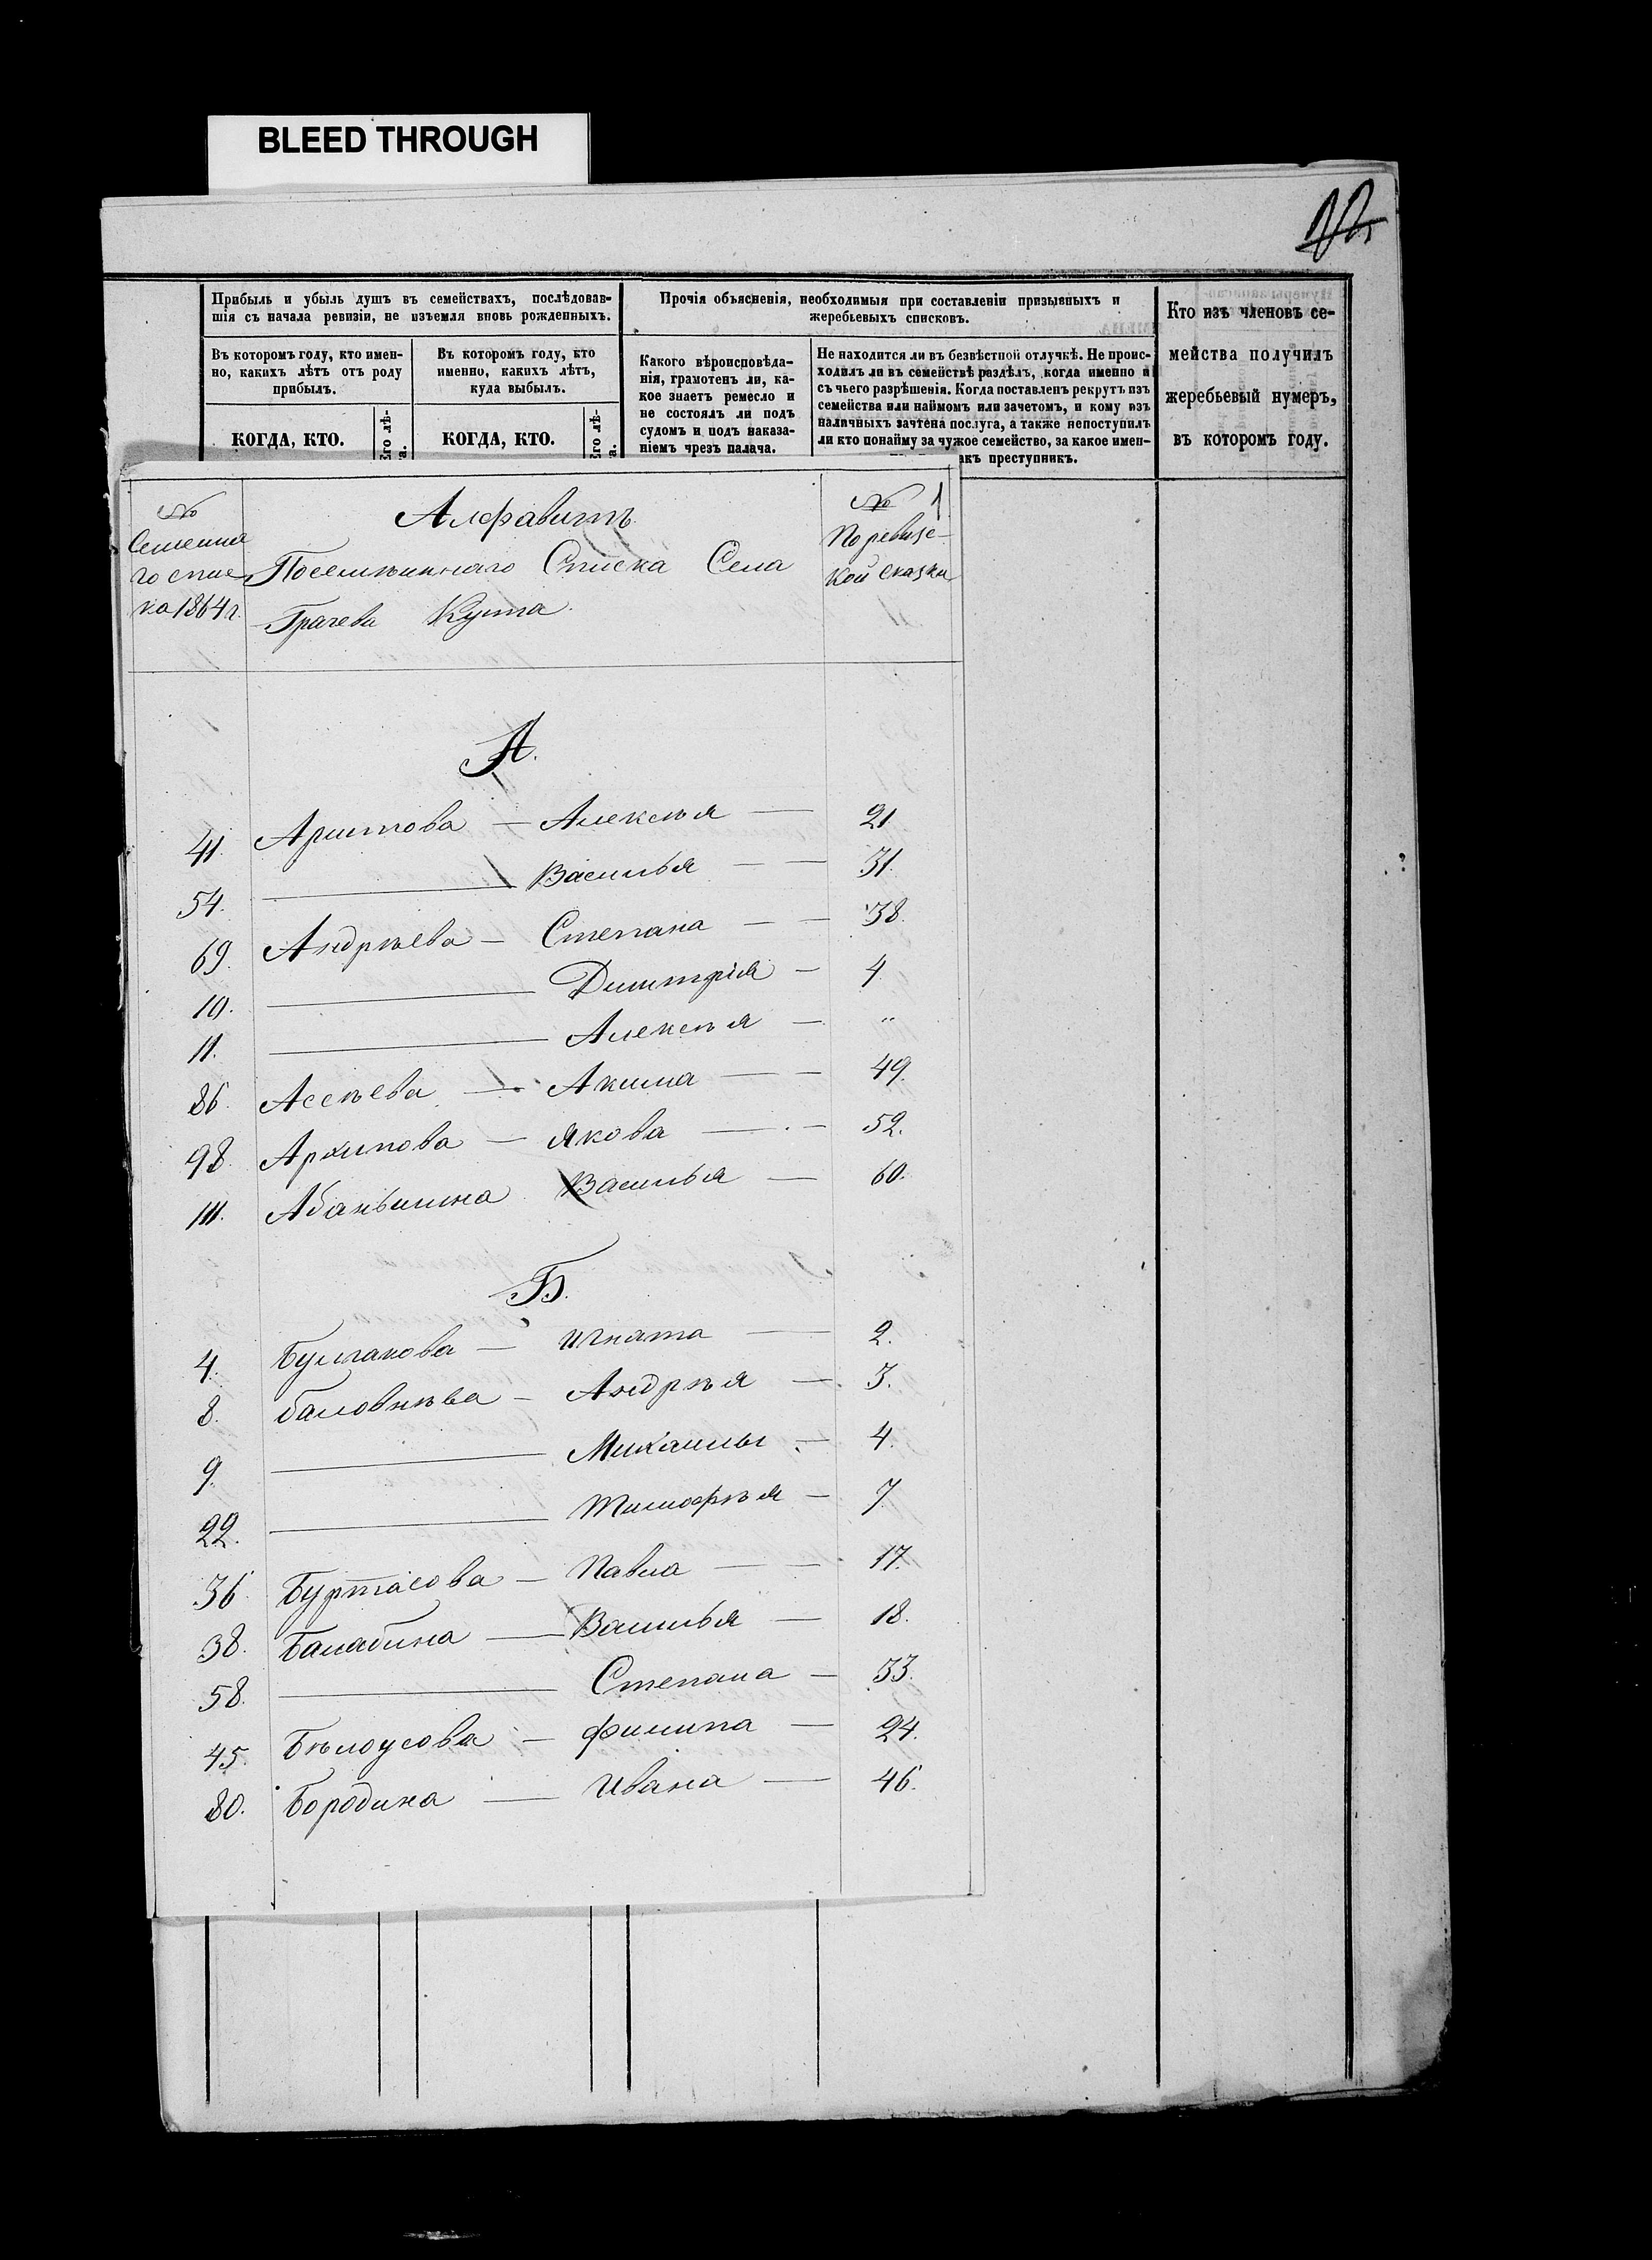 BLEED THROUGH
Прибыль и убыль душъ въ семействахъ, послѣдовав-
шія съ начала ревизіи, не изъемля вновь рожденныхъ.
Въ которомъ году, кто имен-
но, какихъ лѣтъ отъ роду
прибылъ.
КОГДА, КТО.
Въ которомъ году, кто
именно, какихъ лѣтъ,
куда выбылъ.
КОГДА, КТО.
Прочія объясненія, необходимыя при составленіи призывныхъ и
жеребьевыхъ списковъ.
Какого вѣроисповѣда-
нія, грамотенъ ли, ка-
кое знаетъ ремесло и
не состоялъ ли подъ
судомъ и подъ наказа-
ніемъ чрезъ палача.
Не находится ли въ безвѣстной отлучкѣ. Не проис-
ходилъ ли въ семействѣ раздѣлъ, когда именно и
съ чьего разрѣшенія. Когда поставленъ рекрутъ изъ
семейства или наймомъ или зачетомъ, и кому изъ
наличныхъ зачтена послуга, а также непоступилъ
ли кто понайму за чужое семейство, за какое имен-
акъ преступникъ.
Кто изъ членовъ се-
мейства получилъ
жеребьевый нумеръ,
въ которомъ году.
№
Семейна
го спис
ка 1864 г.
Алфавитъ
Посемѣйнаго Списка Села
Грачева Куста
№ 1
По ревизс-
кой сказки
А.
41. Аритова — Алексѣя — 21
54. — Василья — 31.
69. Андрѣева — Степана — 38.
10. — Димитрія — 4
11. — Алексѣя — "
86. Асеѣва — Акима — 49.
98. Архипова — Якова — 52.
111. Абаньшина Василья — 60.
Б.
4. Булгакова — Игната — 2.
8. Баловнѣва — Андрѣя — 3.
9. — Михаилы — 4.
22. — Тимофѣя — 7
36 Буртасова — Павла — 17.
38. Балабина — Василья — 18.
58. — Степана — 33.
45. Бѣлоусова — Филипа — 24.
80. Бородина — Ивана — 46.